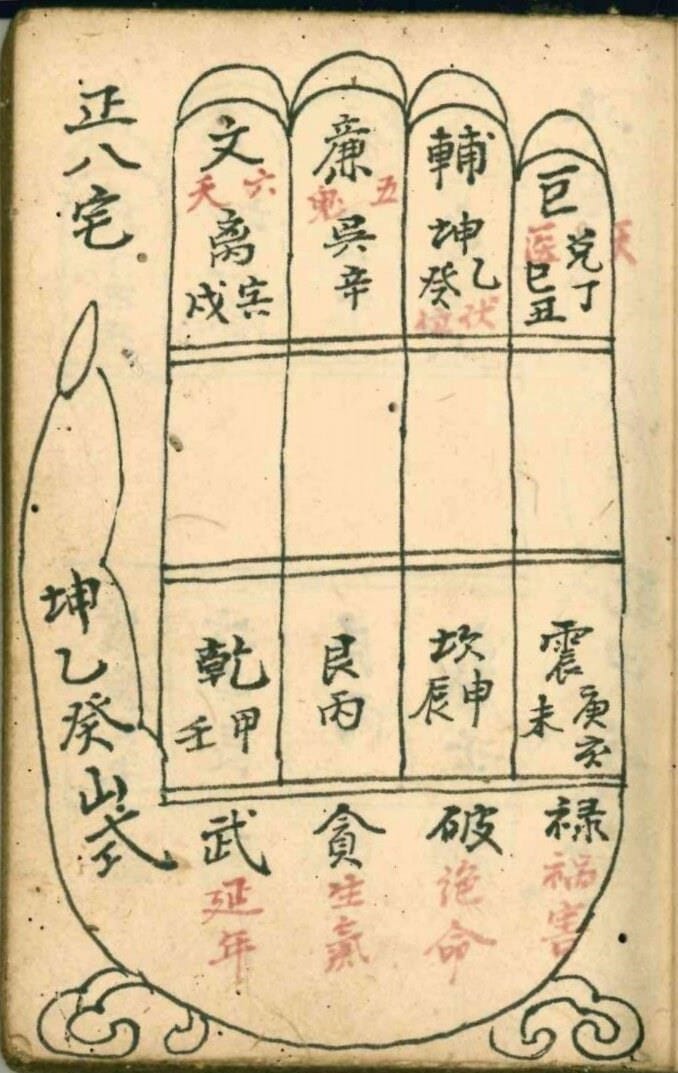 正八宅
文
六
离
寅
戌
廉
五鬼
吳
辛
輔
坤乙
癸
伏位
巨
兑丁
巳丑
医
坤乙癸山式
乾
甲
壬
艮
丙
坎申
辰
震
庚亥
未
武
延年
貪
生氣
破
绝命
禄
祸害